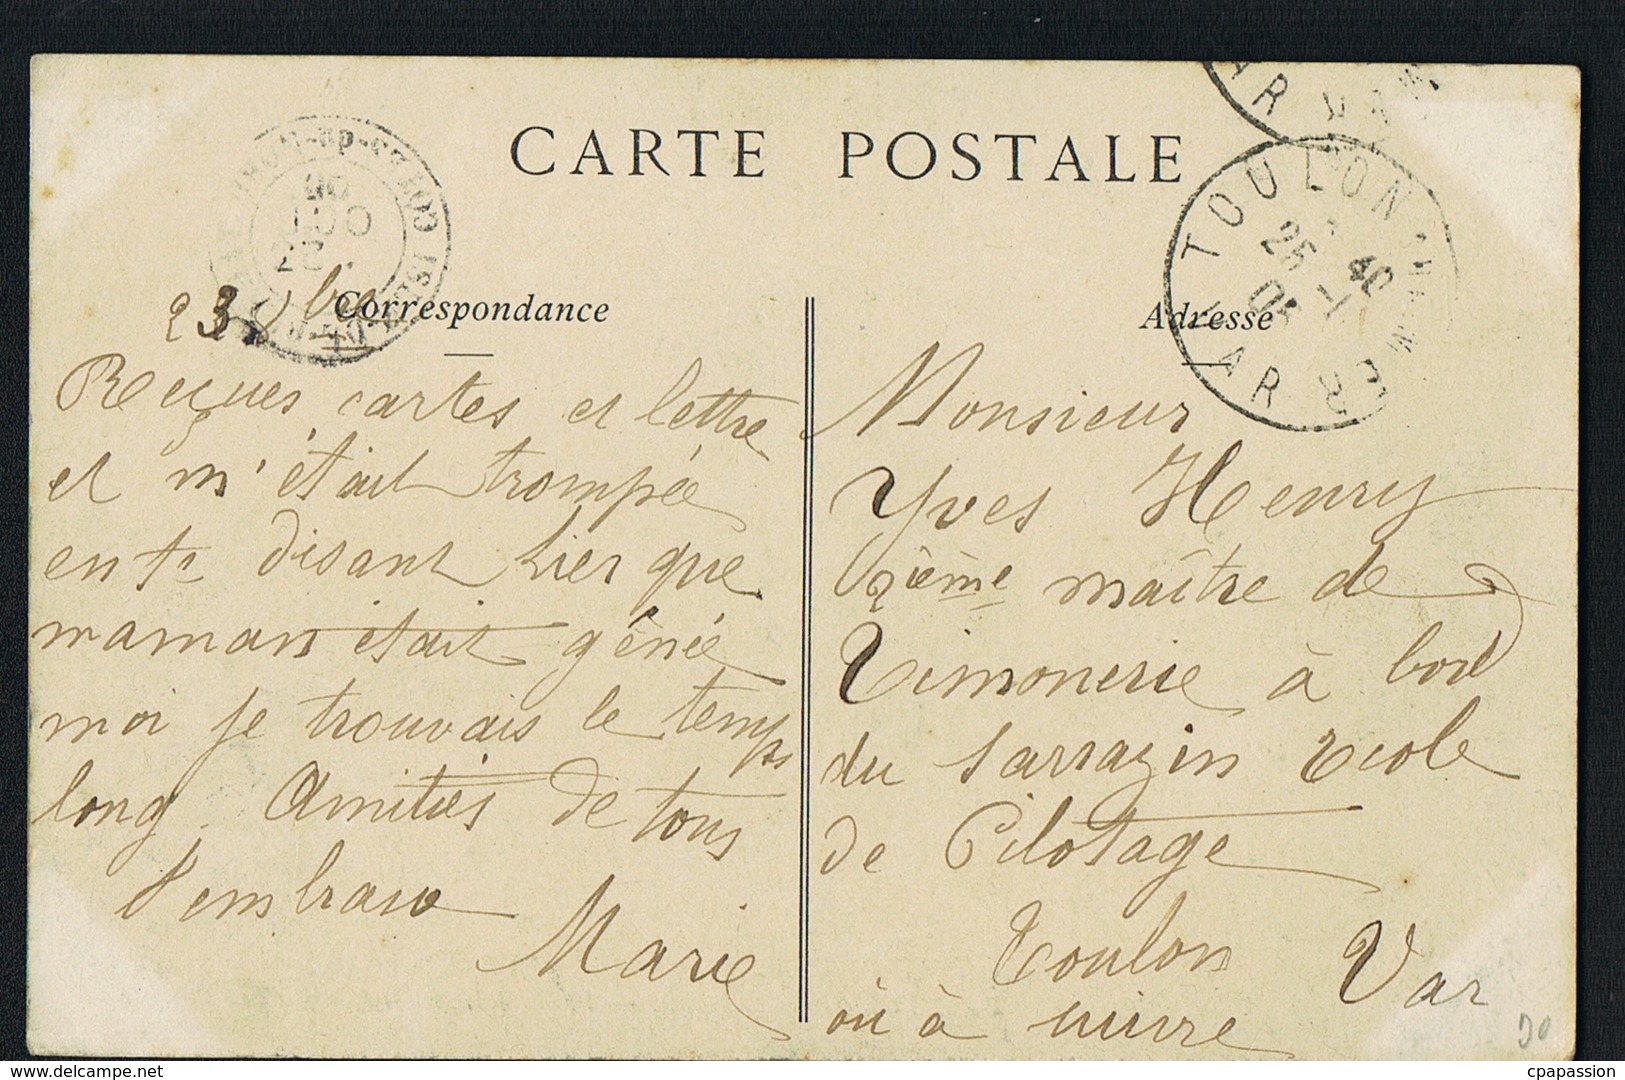 CARTE POSTALE
Correspondance
23 8bre
Reçues cartes et lettre
et m'était trompée
en te disant hier que
maman était génée
moi je trouvais le temps
long. Amitiés de tous
t'embrasse
Marie
Adresse
Monsieur
Yves Henry
2ième maître de
Timonerie à bord
du Sarrazin Ecole
de Pilotage
Toulon Var
où à suivre
TOULON
25 1 40
VAR
OCT
AR
30
cpapassion